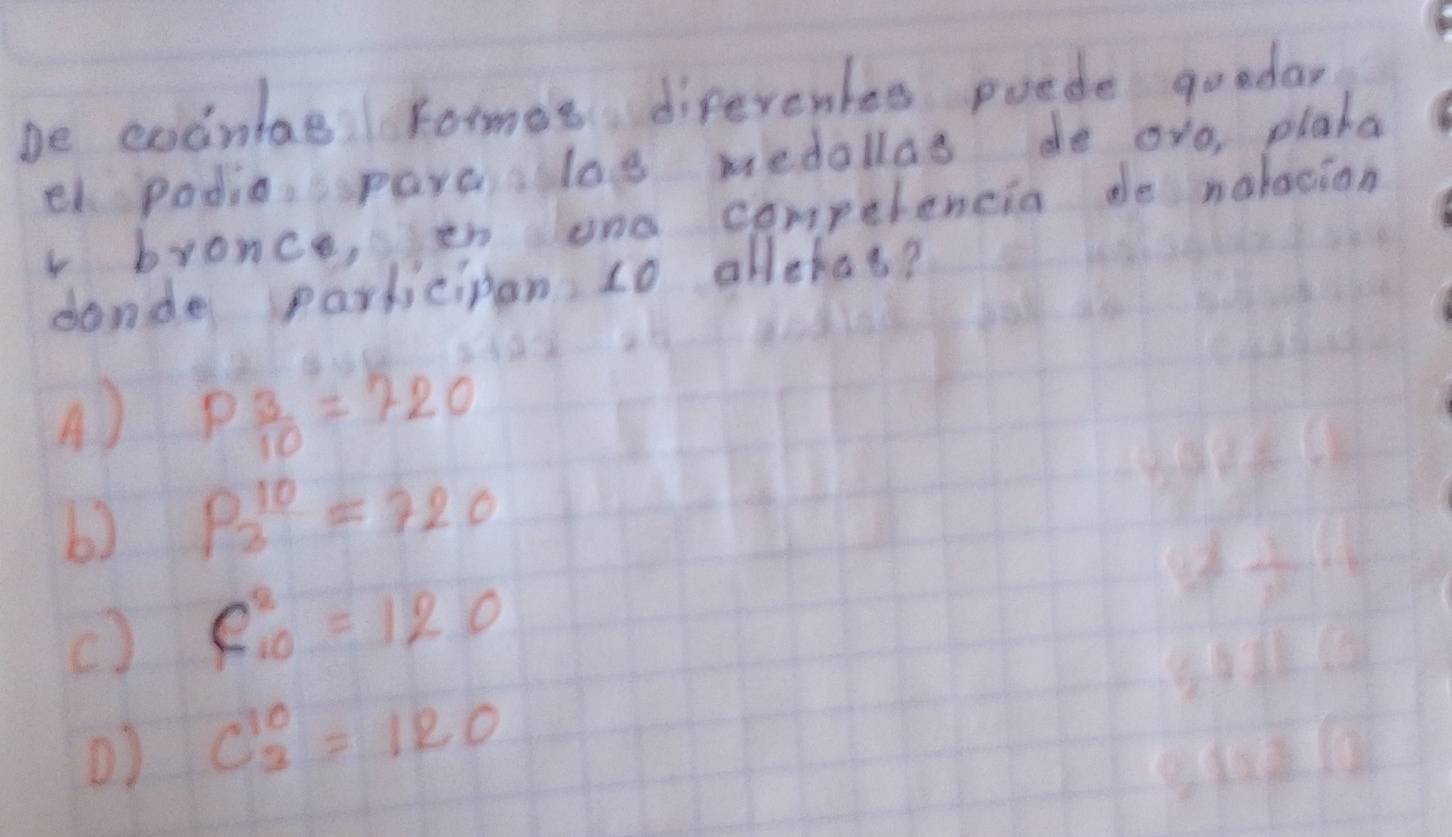 De cuántas formas diferentes puede quedar
el podio para las medallas de oro, plata
y bronce, en una competencia de natación
donde participan 10 atletas?
A) P 3/10 = 720
b) P₃¹⁰ = 720
c) C³₁₀ = 120
D) C¹⁰₃ = 120